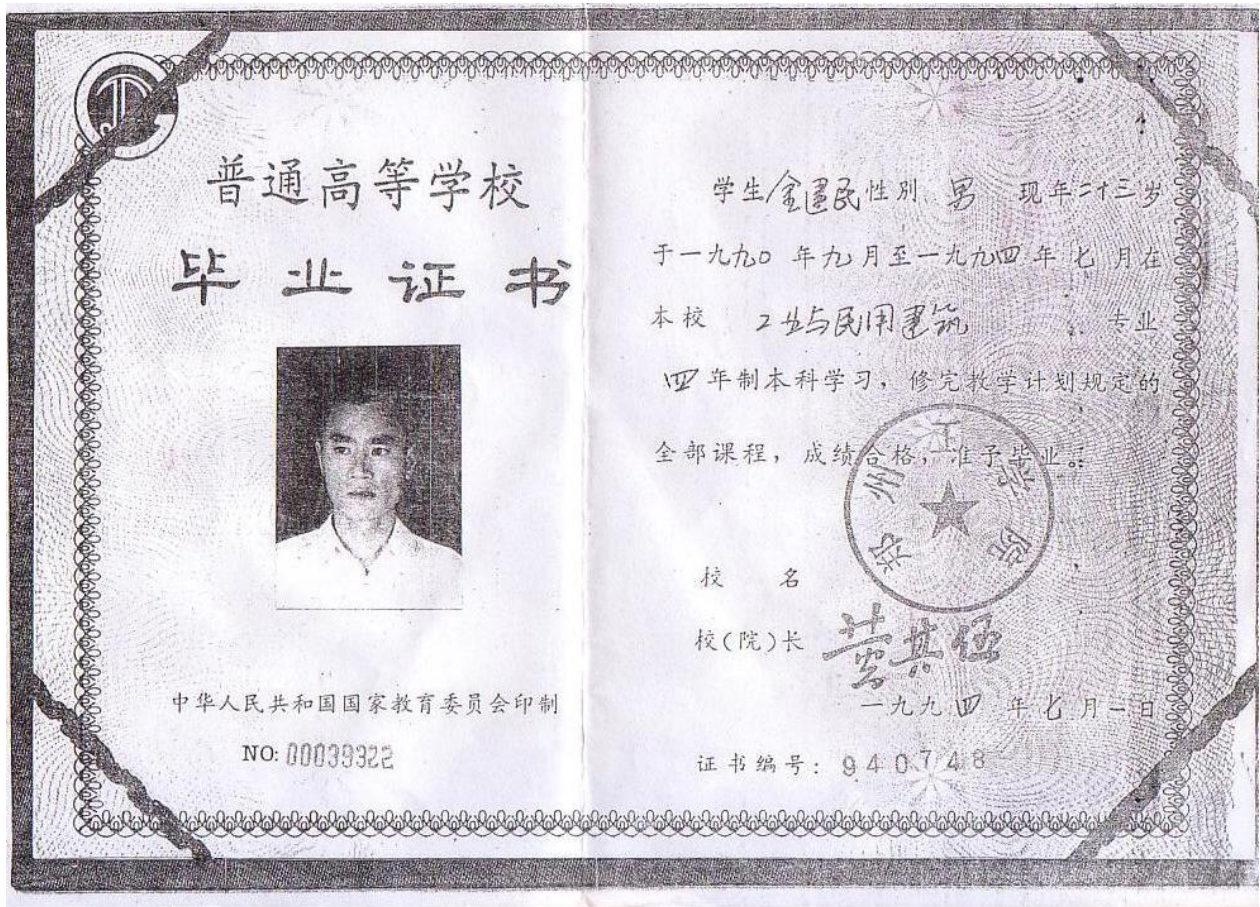 普通高等学校
毕业证书
中华人民共和国国家教育委员会印制
NO: 00039322
学生金建民性别 男 现年二十三岁
于一九九〇年九月至一九九四年七月在
本校 工业与民用建筑 专业
四年制本科学习，修完教学计划规定的
全部课程，成绩合格，准予毕业。
郑州工学院
校 名
校(院)长
一九九四年七月一日
证书编号：940748